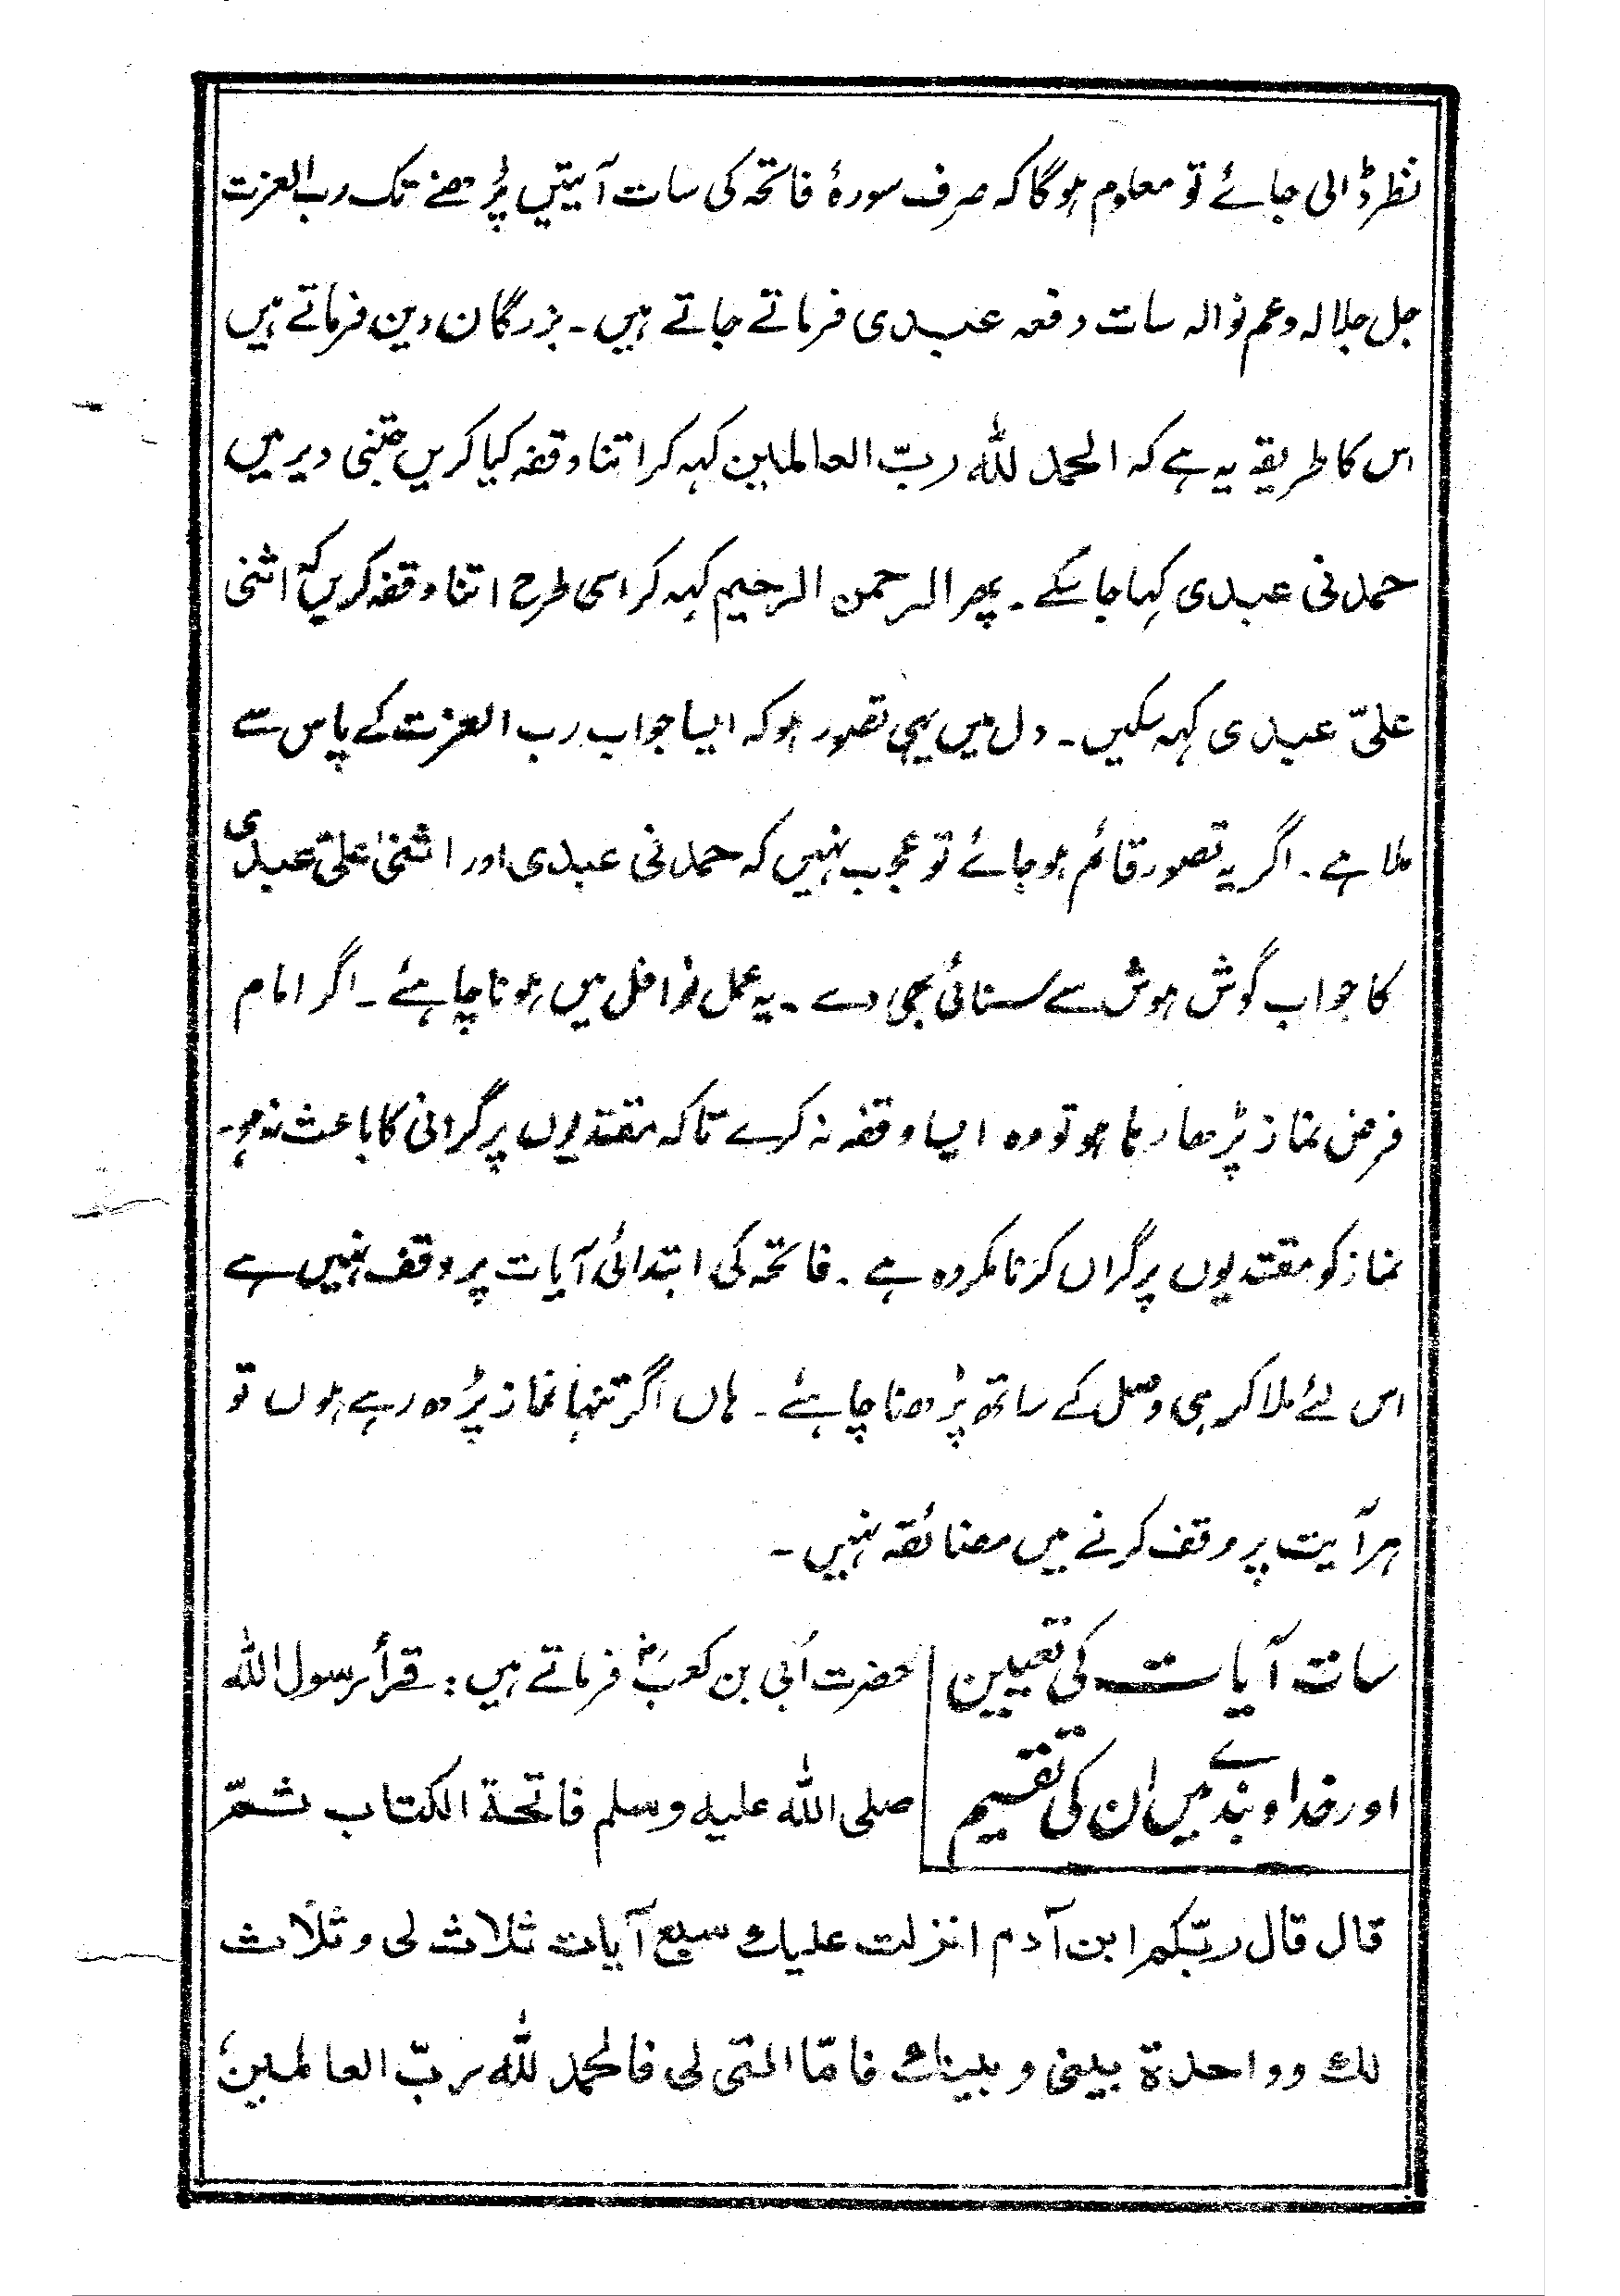 نظر ڈالی جائے تو معلوم ہوگا کہ صرف سورۂ فاتحہ کی سات آیتیں پڑھنے تک رب العزت
جل جلالہ وعم نوالہ سات دفعہ عبدی فرماتے جاتے ہیں۔ بزرگان دین فرماتے ہیں
اس کا طریقہ یہ ہے کہ الحمد للہ ربّ العالمین کہہ کر اتنا وقفہ کیا کریں جتنی دیر میں
حمدنی عبدی کہا جا سکے۔ پھر الرحمن الرحیم کہہ کر اسی طرح اتنا وقفہ کریں کہ اثنی
علیّ عبدی کہہ سکیں۔ دل میں یہی تصور ہو کہ ایسا جواب رب العزت کے پاس سے
ملا ہے۔ اگر یہ تصور قائم ہو جائے تو عجب نہیں کہ حمدنی عبدی اور اثنیٰ علیّ عبدی
کا جواب گوش ہوش سے سنائی بھی دے۔ یہ عمل نوافل میں ہونا چاہئے۔ اگر امام
فرض نماز پڑھا رہا ہو تو وہ ایسا وقفہ نہ کرے تاکہ مقتدیوں پر گرانی کا باعث نہ ہو۔
نماز کو مقتدیوں پر گراں کرنا مکروہ ہے۔ فاتحہ کی ابتدائی آیات پر وقف نہیں ہے
اس لئے ملا کر ہی وصل کے ساتھ پڑھنا چاہئے۔ ہاں اگر تنہا نماز پڑھ رہے ہوں تو
ہر آیت پر وقف کرنے میں مضائقہ نہیں۔
سات آیات کی تعیین
اور خدا و بندے میں ان کی تقسیم
حضرت اُبی بن کعبؓ فرماتے ہیں: قرأ رسول اللہ
صلی اللہ علیہ وسلم فاتحة الکتاب ثمّ
قال قال ربّکم ابن آدم انزلت علیك سبع آیات ثلاث لی وثلاث
لك وواحدة بینی وبینك فامّا التی لی فالحمد للہ ربّ العالمین